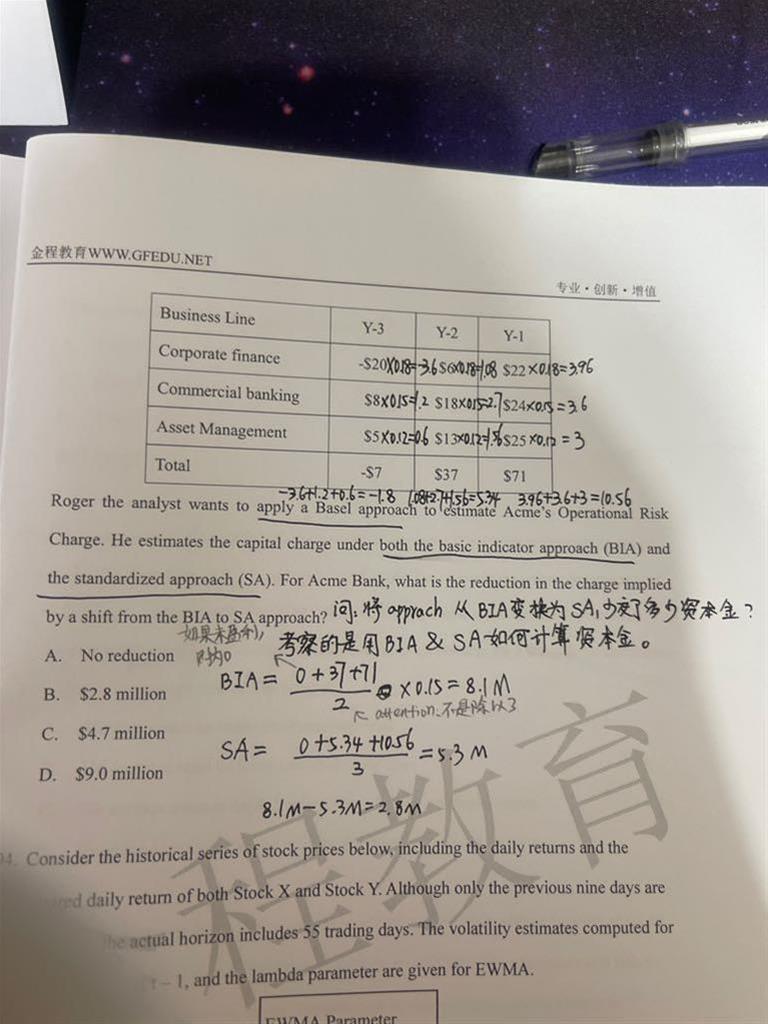 金程教育WWW.GFEDU.NET
专业·创新·增值
Business Line Y-3 Y-2 Y-1
Corporate finance -$20×0.18=-3.6 $6×0.18=1.08 $22×0.18=3.96
Commercial banking $8×0.15=1.2 $18×0.15=2.7 $24×0.15=3.6
Asset Management $5×0.12=0.6 $13×0.12=1.56 $25×0.12=3
Total -$7 $37 $71
-3.6+1.2+0.6=-1.8 1.08+2.7+1.56=5.34 3.96+3.6+3=10.56
Roger the analyst wants to apply a Basel approach to estimate Acme's Operational Risk
Charge. He estimates the capital charge under both the basic indicator approach (BIA) and
the standardized approach (SA). For Acme Bank, what is the reduction in the charge implied
by a shift from the BIA to SA approach? 问:将 approach 从 BIA变换为 SA,少交了多少资本金?
如果未盈利, 考察的是用BIA & SA如何计算资本金。
A. No reduction
BIA= 0+37+71
2 ×0.15=8.1M
B. $2.8 million
attention:不是除以3
C. $4.7 million
SA= 0+5.34+10.56
3 =5.3M
D. $9.0 million
8.1M-5.3M=2.8M
程教育
Consider the historical series of stock prices below, including the daily returns and the
daily return of both Stock X and Stock Y. Although only the previous nine days are
actual horizon includes 55 trading days. The volatility estimates computed for
- 1, and the lambda parameter are given for EWMA.
EWMA Parameter